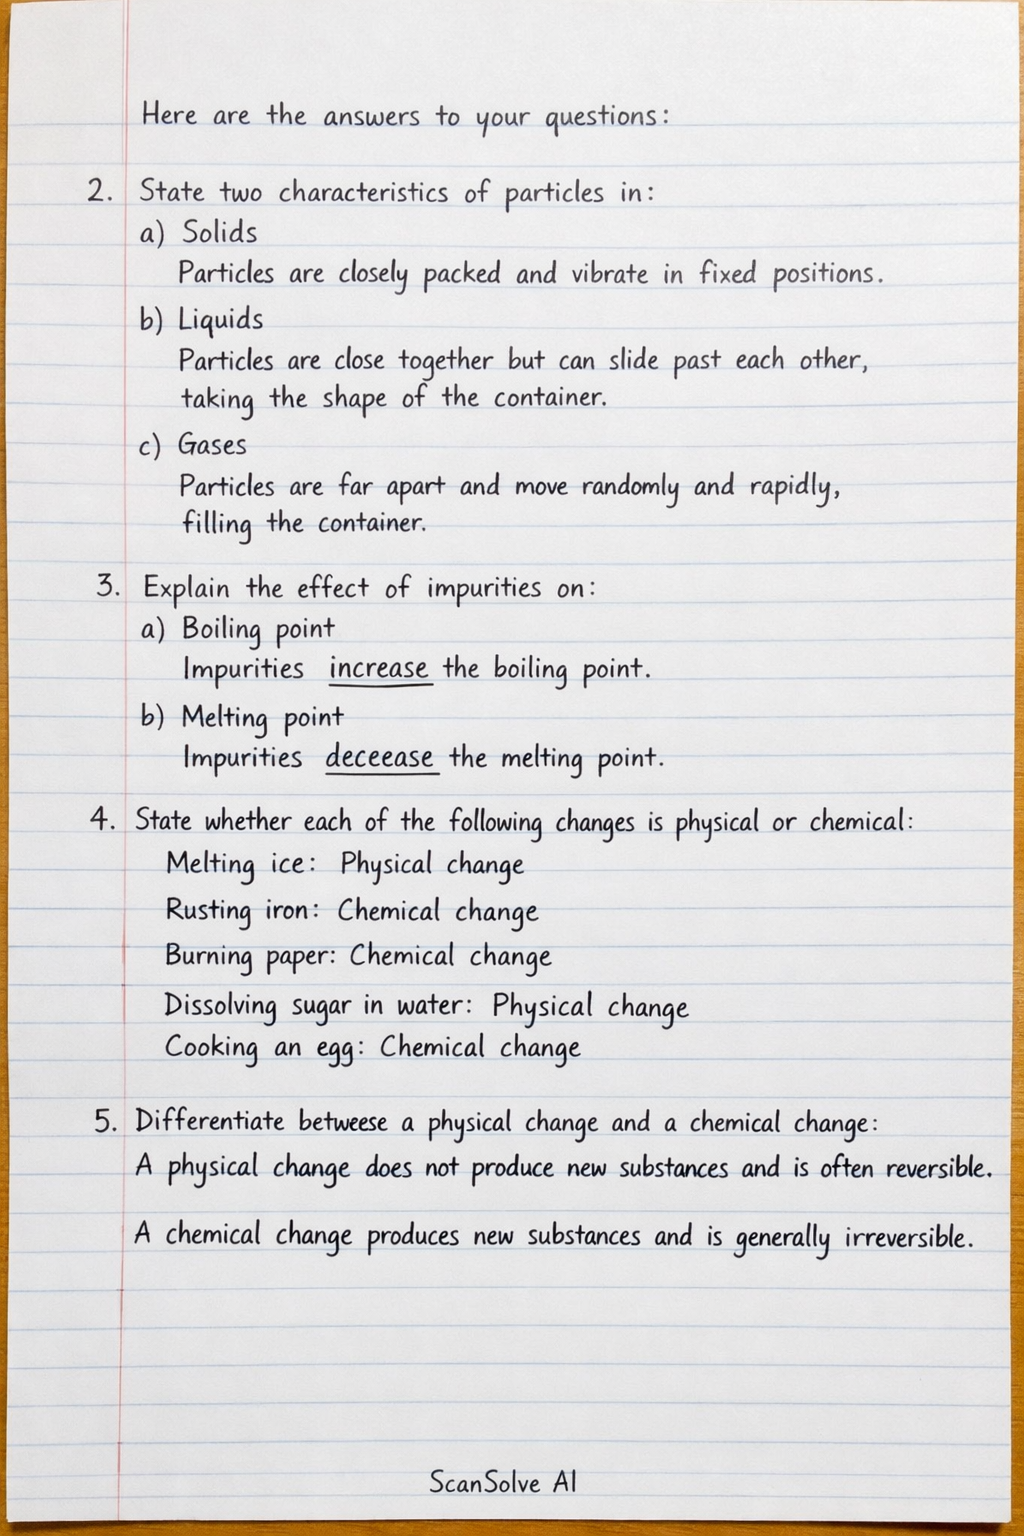 Here are the answers to your questions:
2. State two characteristics of particles in:
a) Solids
Particles are closely packed and vibrate in fixed positions.
b) Liquids
Particles are close together but can slide past each other,
taking the shape of the container.
c) Gases
Particles are far apart and move randomly and rapidly,
filling the container.
3. Explain the effect of impurities on:
a) Boiling point
Impurities increase the boiling point.
b) Melting point
Impurities deceease the melting point.
4. State whether each of the following changes is physical or chemical:
Melting ice: Physical change
Rusting iron: Chemical change
Burning paper: Chemical change
Dissolving sugar in water: Physical change
Cooking an egg: Chemical change
5. Differentiate betweese a physical change and a chemical change:
A physical change does not produce new substances and is often reversible.
A chemical change produces new substances and is generally irreversible.
ScanSolve AI